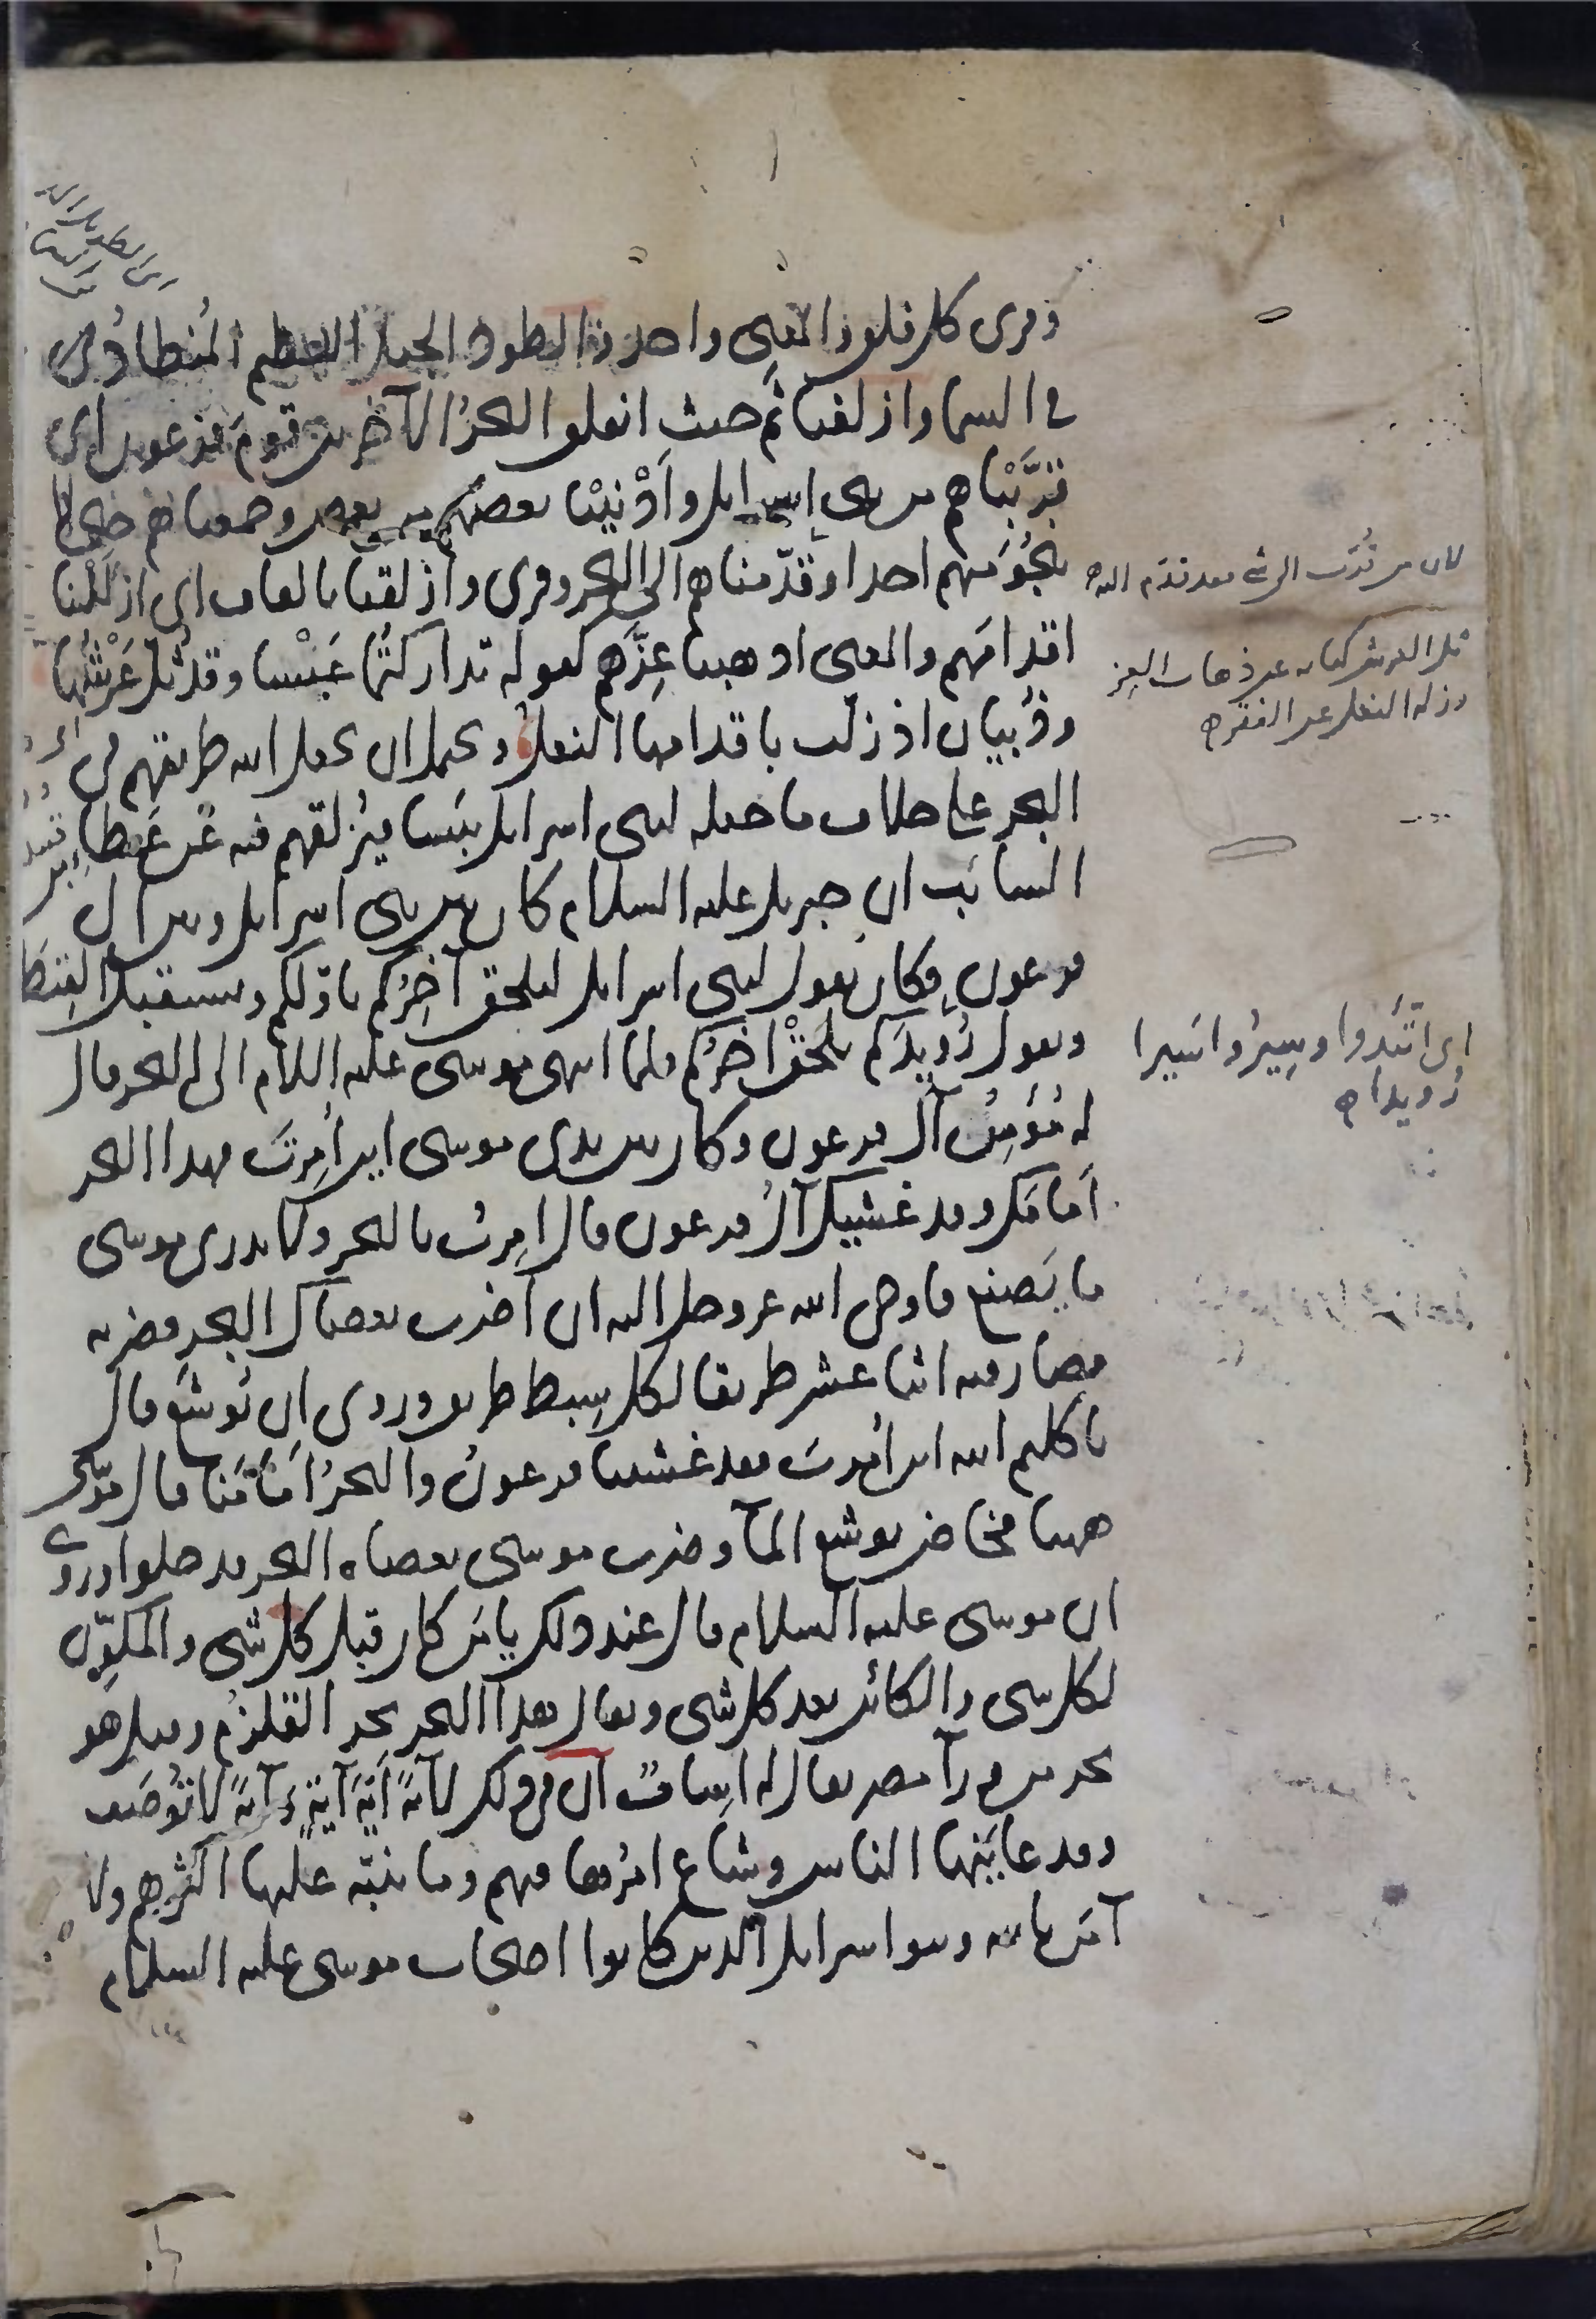 وقرى كل فلق والمعنى واحد والطود الجبل العظيم المنطاد في
في السما وازلفنا ثَم حيث انفلق البحرُ الآخرين قومَ فرعون اى
قرَّبناهم من بنى اسرايل وَاَدْنَيْنا بعضهم من بعض وجمعناهم حتى لا
ينجُوَ منهم احد او قدّمناهم الى البحر وقرى وازلقنا بالقاف اى ازللنا
اقدامَهم والمعنى اذهبنا عِزَّهم كقوله تداركتُما عَبْسا وقد ثُلَّ عَرْشُها
وذُبيان اذ زلّت باقدامها النعل ويحتمل ان يجعل الله طريقهم في
البحر على خلاف ما جعله لبنى اسرايل يَبَسا فيُزلقهم فيه عن عَطاءِ بن
السايَب ان جبريل عليه السلام كان بين بنى اسرايل وبين ال
فرعون فكان يقول لبنى اسرايل ليلحق آخِرُكم باوّلكم ويستقبل القِبْطَ
ويقول رُوَيدَكم يلحَقْ اخِرُكم فلما انتهى موسى عليه السلام الى البحر قال
له مُؤمِنُ آل فرعون وكان بين يدى موسى اين اُمِرتَ فهذا البحر
اَمامَك وقد غشيك آلُ فرعون قال اُمِرتُ بالبحر ولا يدرى موسى
ما يَصنع فاوحى الله عز وجل اليه ان اضرب بعصاك البحر فضربه
فصار فيه اثنا عشر طريقا لكل سِبط طريق وروى ان يُوشَع قال
يا كليم الله اين اُمِرتَ فقد غشينا فرعونُ والبحرُ اَمامَنا قال موسى
ههنا فخاض يوشع المآ وضرب موسى بعصاه البحر فدخلوا وروى
ان موسى عليه السلام قال عند ذلك يا مَن كان قبل كل شى والمكوِّن
لكل شى والكائن بعد كل شى ويقال هذا البحر بحر القلزم وقيل هو
بحر من ورآ مصر يقال له اِساف ان في ذلك لآيةً اَيَّةَ آيةٍ وآيةً لا تُوصَف
وقد عايَنَها الناس وشاع امرُها فيهم وما تنبّه عليها اكثرهم ولا
آمَن بالله وبنوا اسرايل الذين كانوا اصحاب موسى عليه السلام
لان من قُرّب الى شى فقد قدّم اليه
ثل العرش كنايه عن ذهاب العِز
وزلة النعل عن الفقر
اى اتّئدوا وسِيرُوا سَيرا
رُويدا